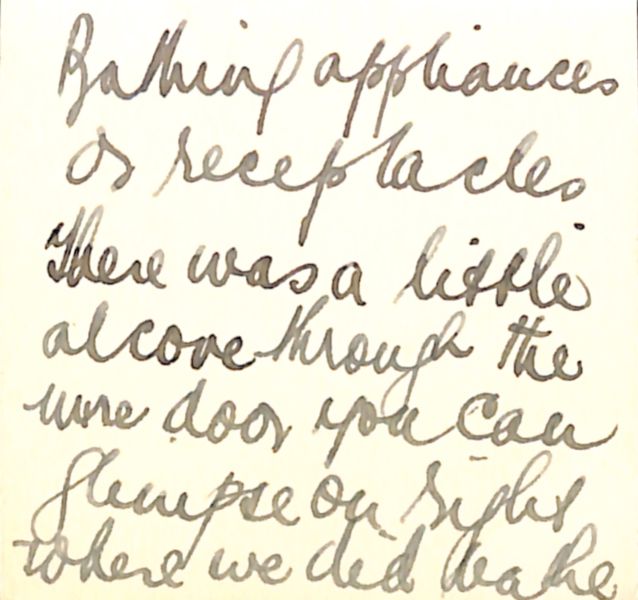 Bathing appliances
or receptacles
There was a little
alcove through the
wire door you can
glimpse on right
where we did bathe